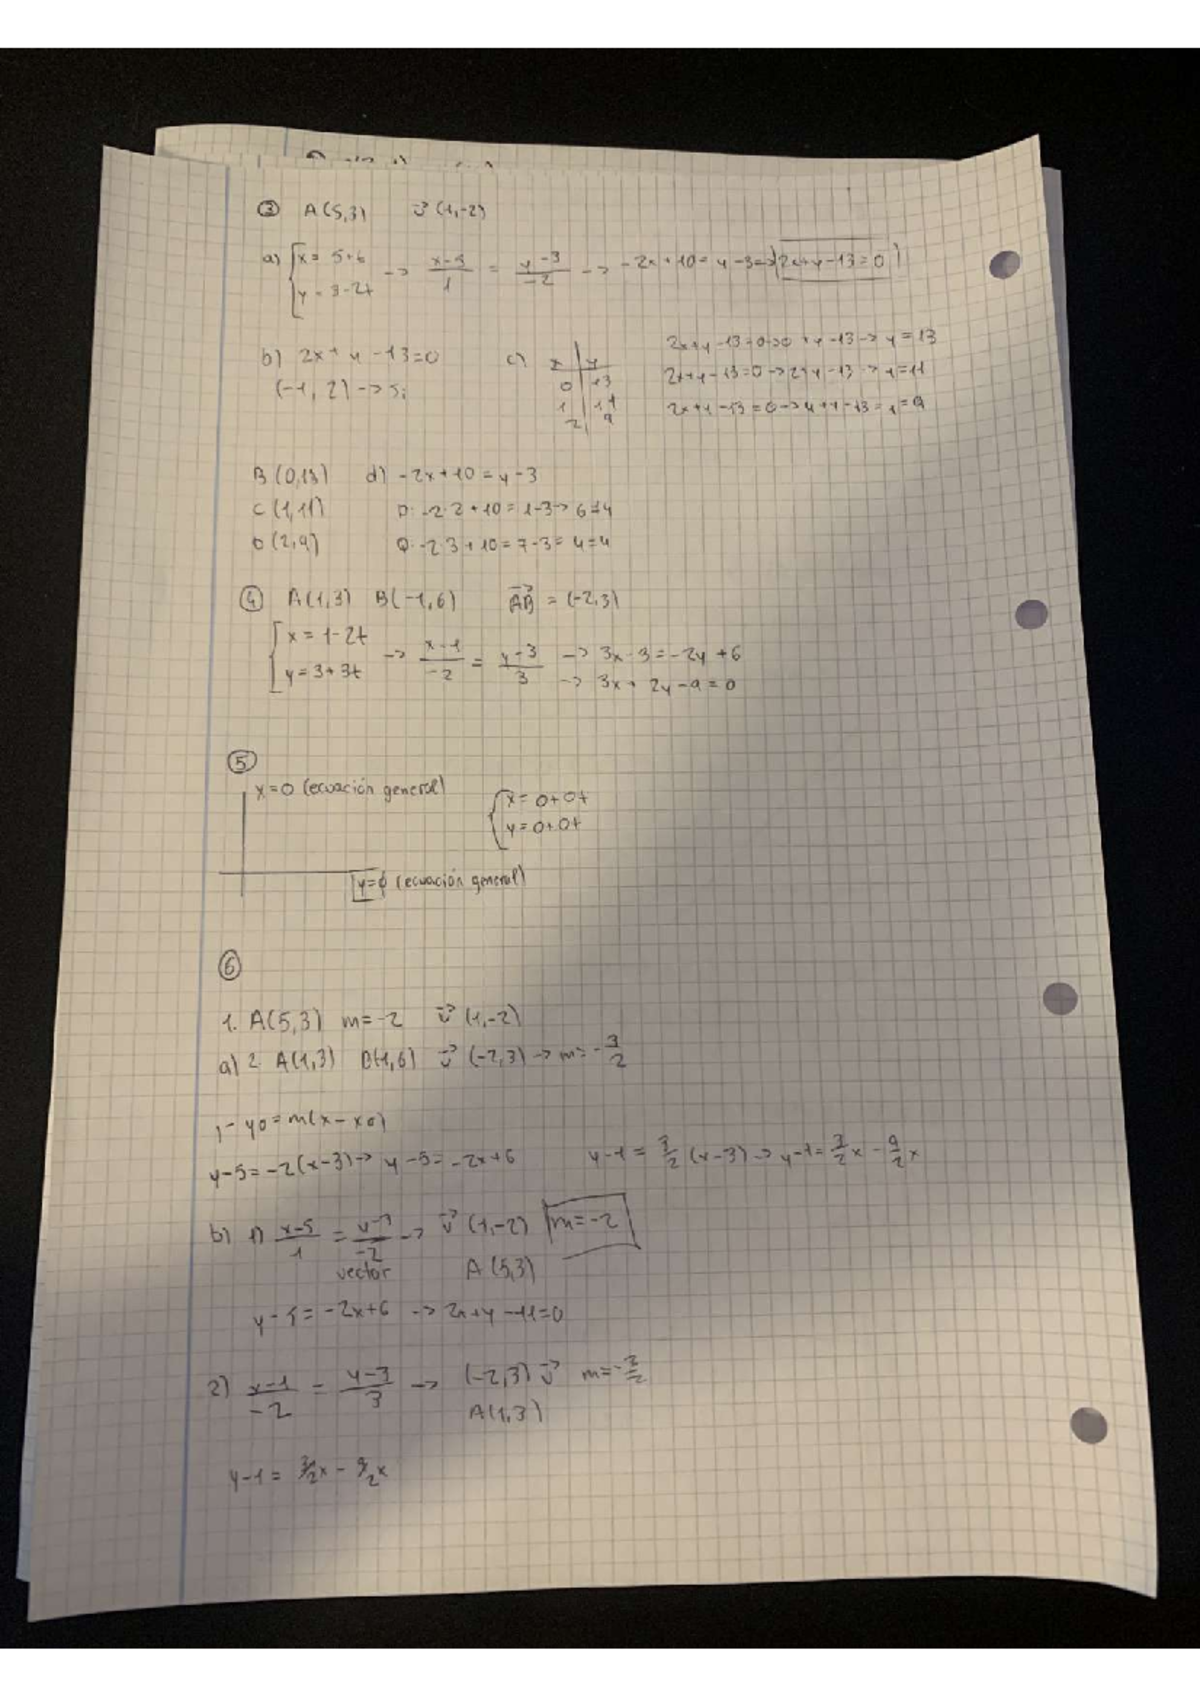 ③ A(5,3) v⃗(1,-2)
a) { x = 5+t → x-5/1 = y-3/-2 → -2x+10 = y-3 → 2x+y-13=0
y = 3-2t
b) 2x+y-13=0 c) x | y 2x+y-13=0→0+y-13→y=13
(-1, 2) → Si 0 | 13 2x+y-13=0→2+y-13→y=11
1 | 11 2x+y-13=0→4+y-13=y=9
2 | 9
B (0,13) d) -2x+10=y-3
C (1,11) P: -2·2+10=1-3→6≠4
D (2,9) Q: -2·3+10=7-3=4=4
④ A(1,3) B(-1,6) AB⃗ = (-2,3)
{ x = 1-2t → x-1/-2 = y-3/3 → 3x-3=-2y+6
y = 3+3t → 3x+2y-9=0
⑤
x=0 (ecuación general) { x = 0+0t
y = 0+0t
y=0 (ecuación general)
⑥
1. A(5,3) m=-2 v⃗(1,-2)
a) 2. A(1,3) B(-1,6) v⃗(-2,3) → m=-3/2
y-y0=m(x-x0)
y-5=-2(x-3)→ y-5=-2x+6 y-1=3/2(x-3)→y-1=3/2x-9/2x
b) 1) x-5/1 = y-3/-2 → v⃗(1,-2) m=-2
vector A(5,3)
y-5=-2x+6 → 2x+y-11=0
2) x-1/-2 = y-3/3 → (-2,3) v⃗ m=-3/2
A(1,3)
y-1= 3/2x - 9/2x